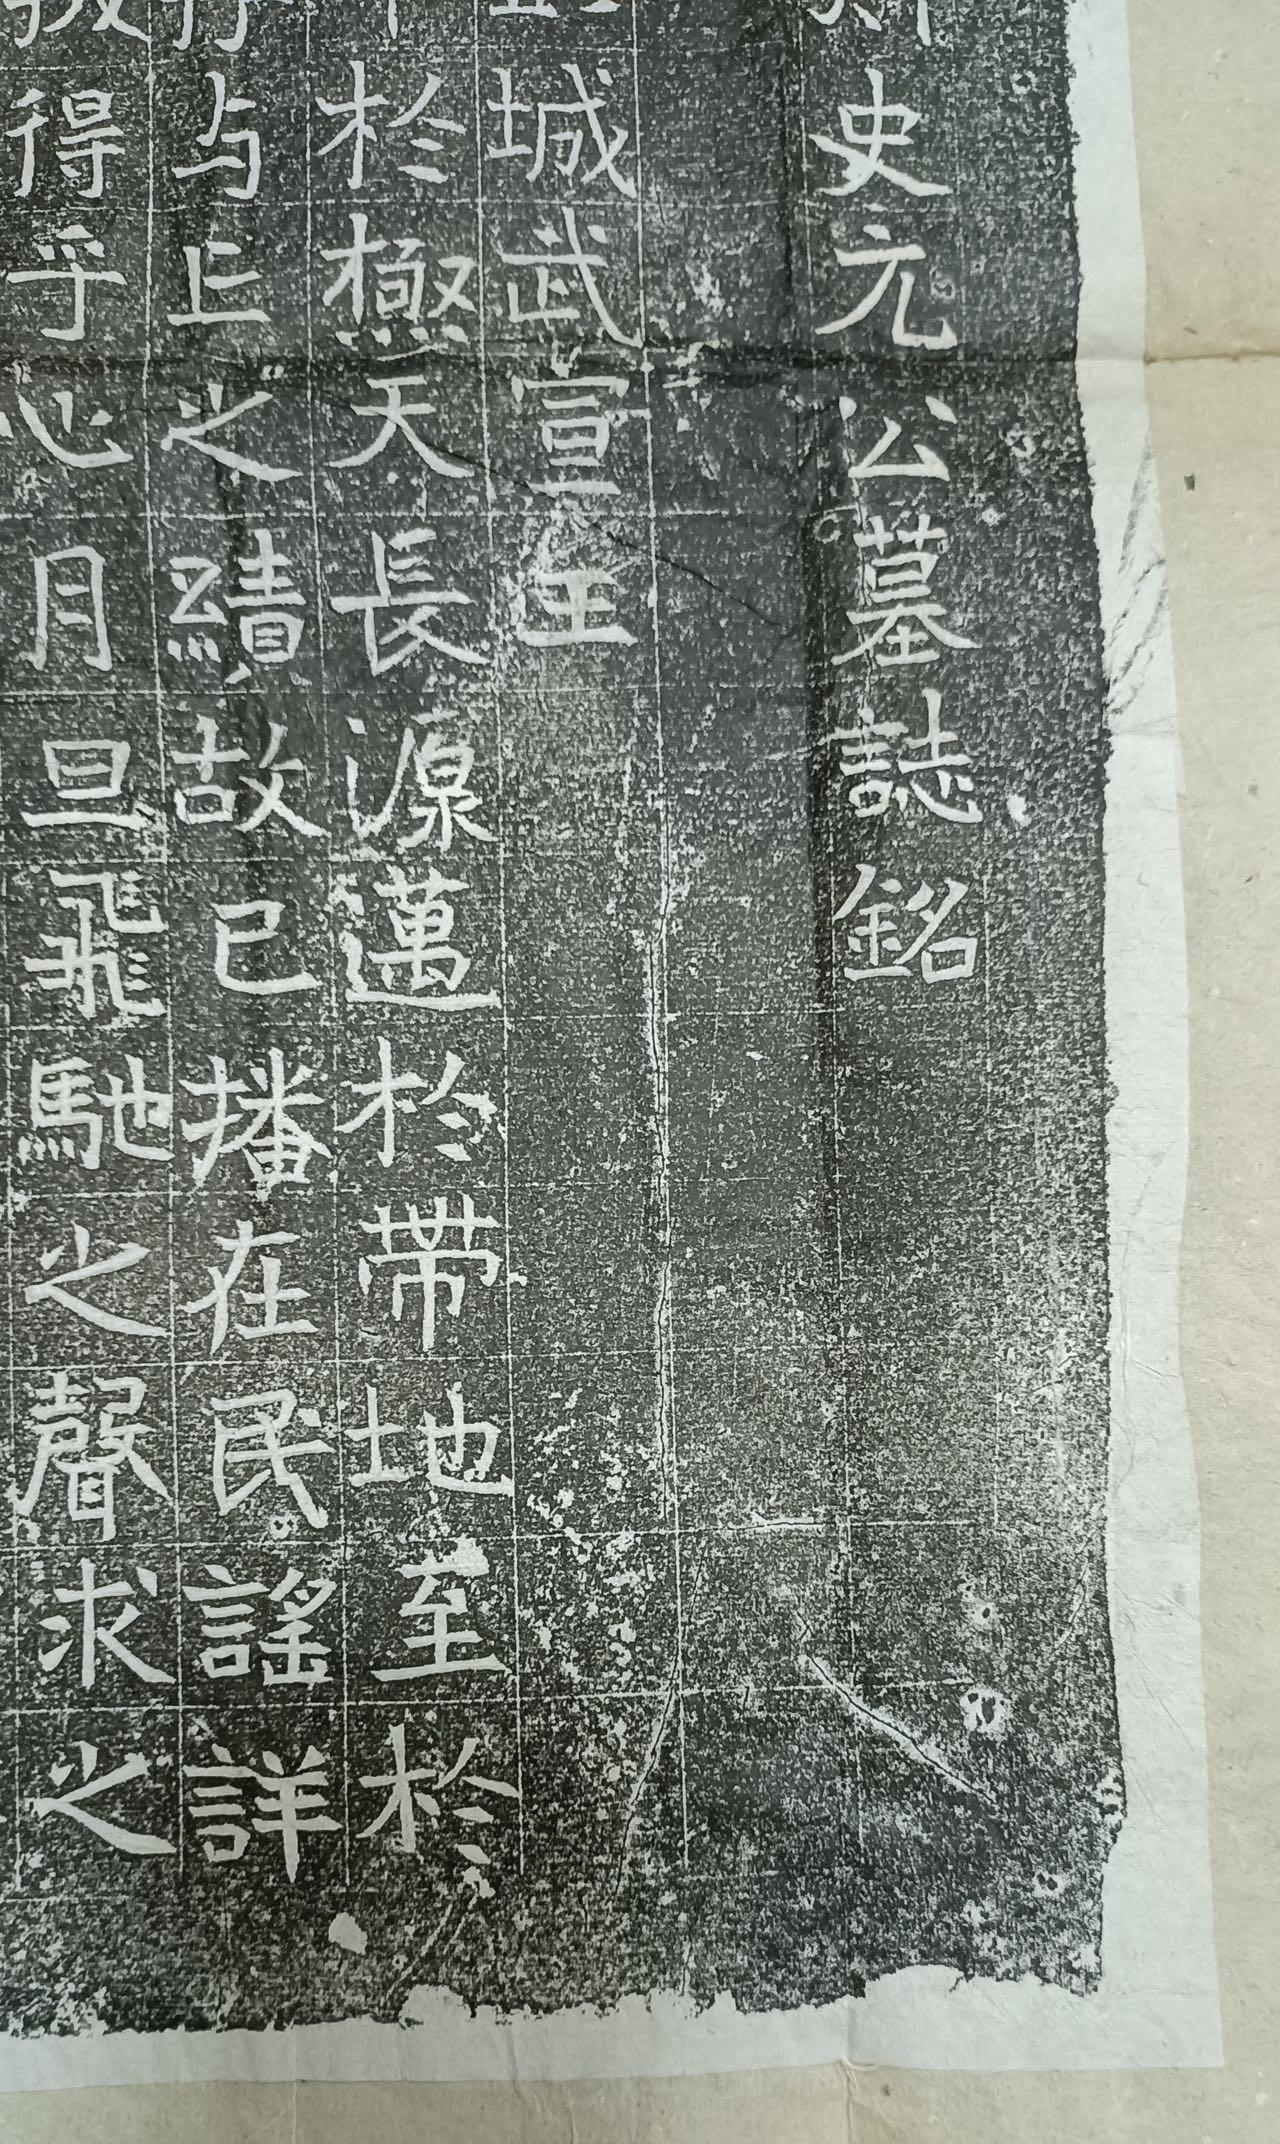 史元公墓誌銘
城武宣王
於極天長源邁於帶地至於
与上之績故已播在民謠詳
得乎心月旦飛馳之聲求之